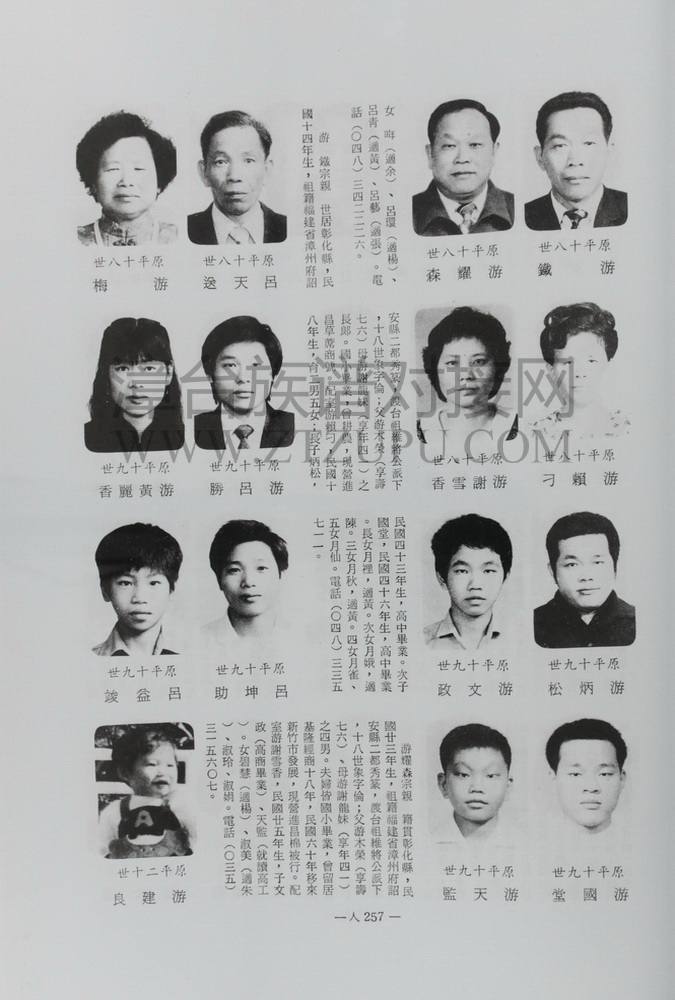 世八十平原
鐵　游
世八十平原
森耀游
女　哖（適余）、呂環（適楊）、
呂靑（適黃）、呂藝（適張）。電
話（〇四八）三四二二二六。
游　鐵宗親　世居彰化縣，民
國十四年生，祖籍福建省漳州府詔
世八十平原
送天呂
世八十平原
梅　游
世八十平原
刁賴游
世八十平原
香雪謝游
安縣二都秀篆，渡台祖維將公派下
，十八世象字倫；父游木榮（享壽
七六）母游謝龍妹（享年四一）之
長郎。國小畢業，曾耕農，現營進
昌草蓆商號。配室游賴刁，民國十
八年生，育二男五女；長子炳松，
世九十平原
勝呂游
世九十平原
香麗黃游
世九十平原
松炳游
世九十平原
政文游
民國四十三年生，高中畢業。次子
國堂，民國四十六年生，高中畢業
。長女月裡，適黃。次女月娥，適
陳。三女月秋，適黃。四女月雀、
五女月仙。電話（〇四八）三三五
七一一。
世九十平原
助坤呂
世九十平原
竣益呂
世九十平原
堂國游
世九十平原
監天游
游耀森宗親　籍貫彰化縣，民
國廿三年生，祖籍福建省漳州府詔
安縣二都秀篆，渡台祖維將公派下
，十八世象字倫；父游木榮（享壽
七六）、母游謝龍妹（享年四一）
之四男。夫婦皆國小畢業，曾留居
基隆經商十八年，民國六十年移來
新竹市發展，現營進昌棉被行。配
室游謝雪香，民國廿五年生，子文
政（高商畢業）、天監（就讀高工
）。女碧慧（適楊）、淑美（適朱
）、淑玲、淑娟。電話（〇三五）
三一五六〇七。
世二十平原
良建游
— 人 257 —
漳台族谱对接网
WWW.ZTZUPU.COM